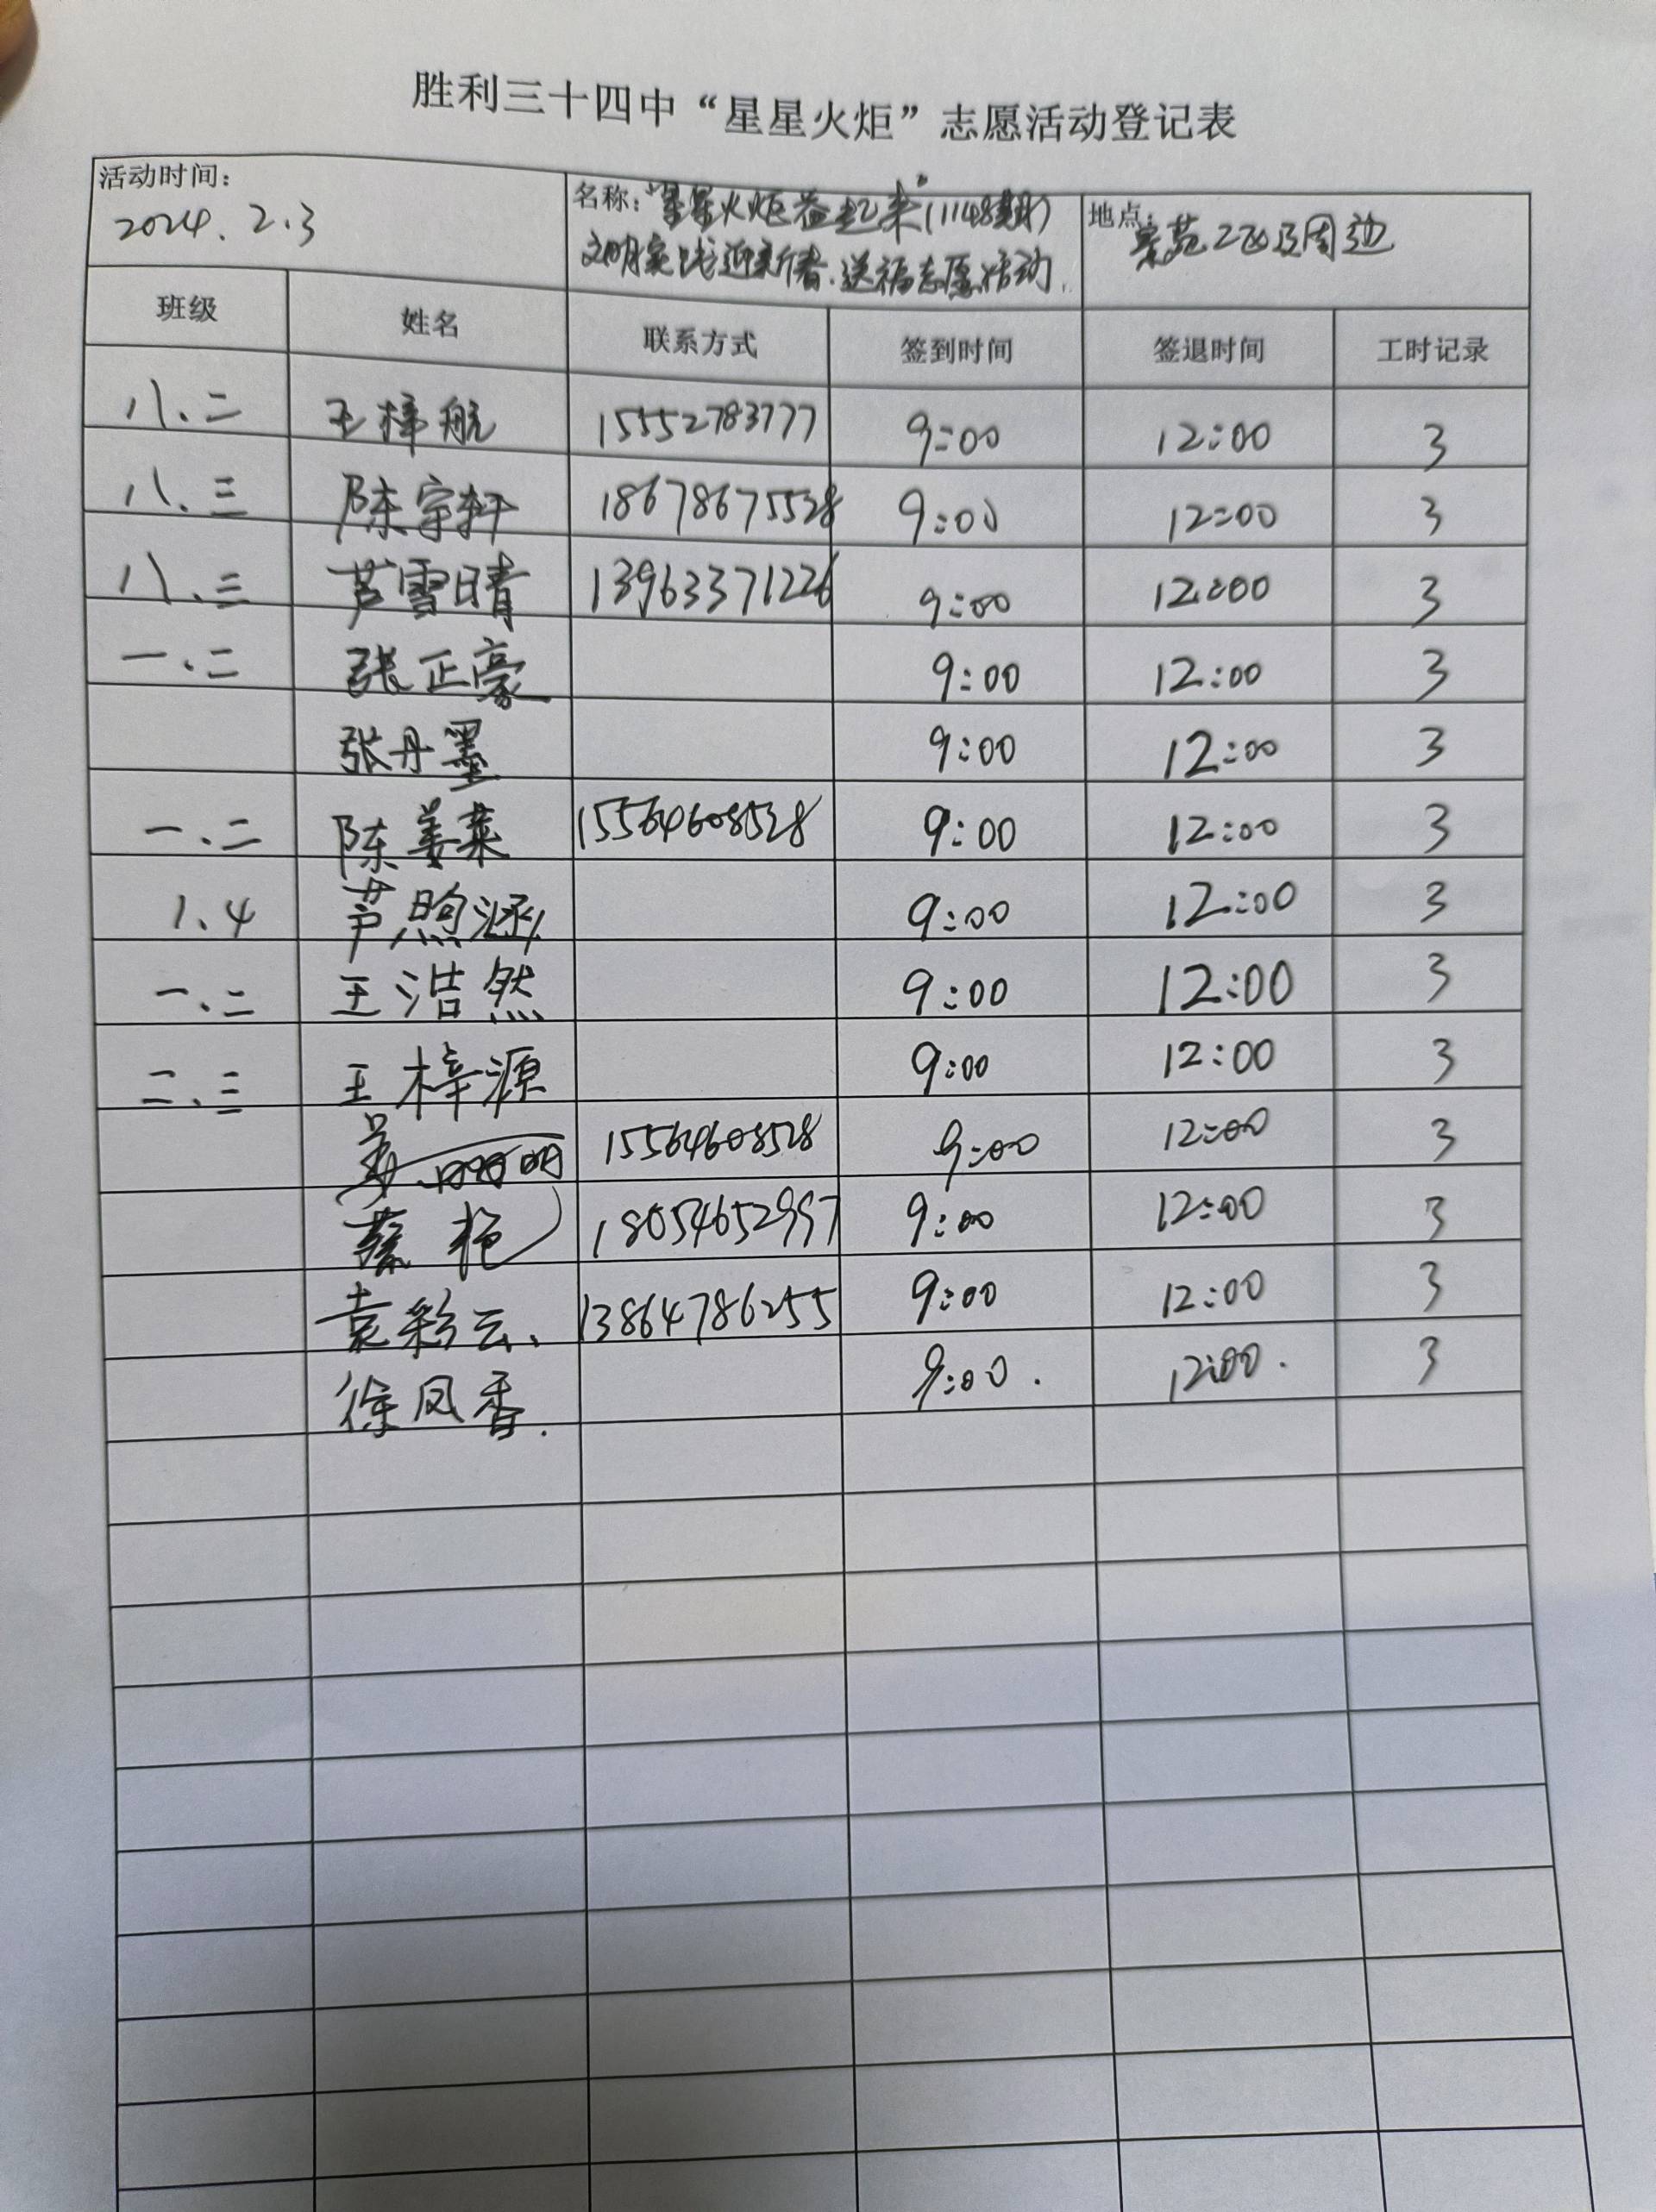 胜利三十四中“星星火炬”志愿活动登记表
活动时间: 名称:“星星火炬益起来(1148期) 地点:
2024.2.3 文明实践迎新春.送福志愿活动. 景苑2区及周边
班级 姓名 联系方式 签到时间 签退时间 工时记录
八.二 王梓航 15552783777 9:00 12:00 3
八.三 陈宗轩 18678675528 9:00 12:00 3
八.三 芦雪晴 13963371226 9:00 12:00 3
一.二 张正豪 9:00 12:00 3
张丹墨 9:00 12:00 3
一.二 陈姜菜 15564608528 9:00 12:00 3
1.4 芦煦涵 9:00 12:00 3
一.二 王浩然 9:00 12:00 3
二.三 王梓源 9:00 12:00 3
姜 15564608528 9:00 12:00 3
蔡艳 18054652997 9:00 12:00 3
袁彩云、 13864786255 9:00 12:00 3
徐凤香. 9:00. 12:00. 3